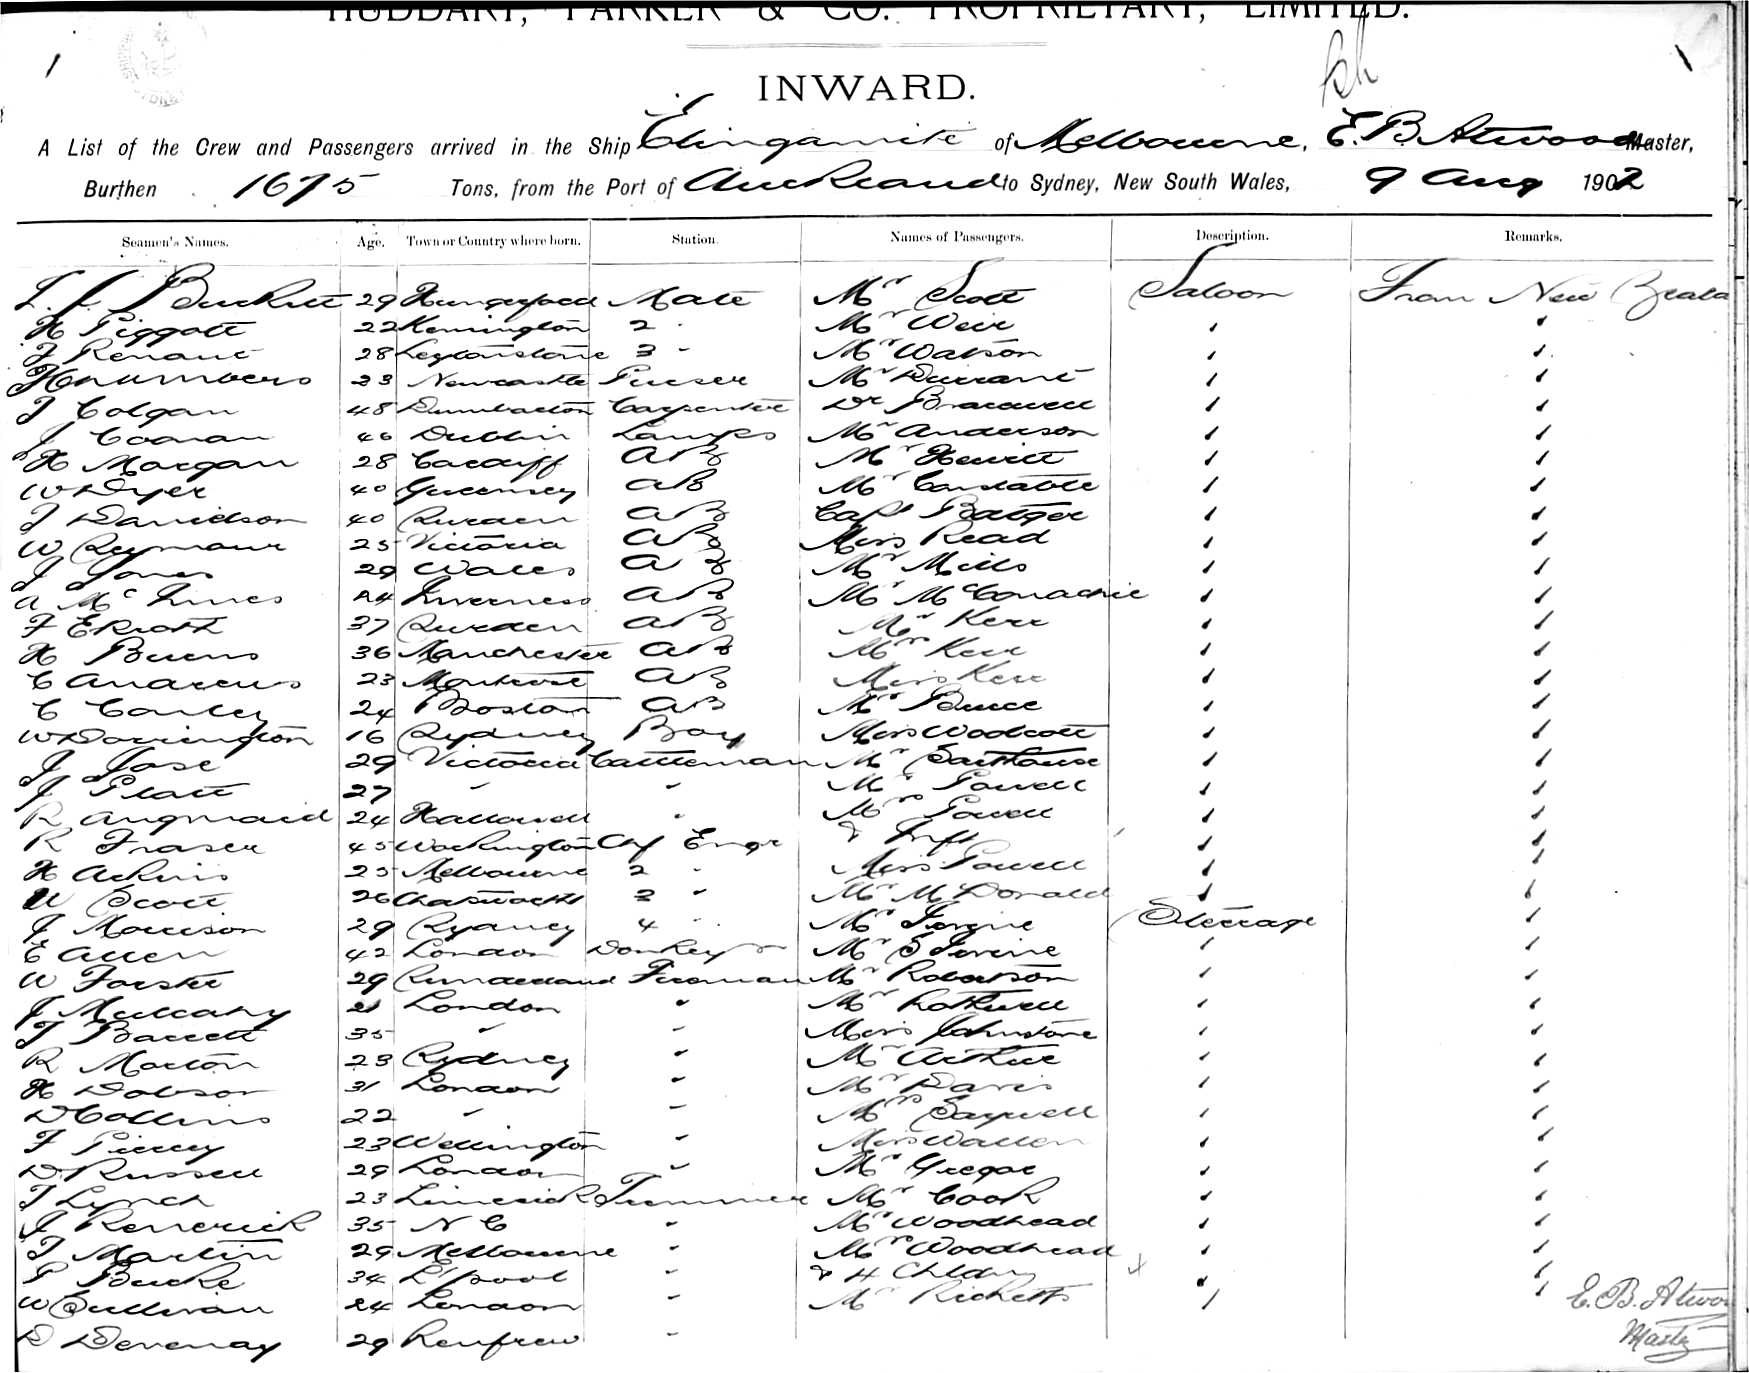 HUDDART, PARKER & CO. PROPRIETARY, LIMITED.
INWARD.
A List of the Crew and Passengers arrived in the Ship Elingamite of Melbourne, E. B. Atwood Master,
Burthen 1675 Tons, from the Port of Auckland to Sydney, New South Wales, 9 Aug 1902
Seamen's Names. Age. Town or Country where born. Station. Names of Passengers. Description. Remarks.
29 Mate Mr Scott Saloon From New
H Piggott 22 Kennington 2 " Mr Weir
28 Leytonstone 3 " Mr Watson
23 Newcastle Purser Mr Durrant
J Colgan 48 Dumbarton Carpenter Dr
46 Dublin Lamps Mr Anderson
H Morgan 28 Cardiff AB Mr Hewitt
W Dyer 40 Guernsey AB Mr Constable
J Davidson 40 Sweden AB Capt
W Seymour 25 Victoria AB Miss Read
J Jones 29 Wales AB Mr Mills
A McInnes 24 Inverness AB Mr McConachie
F Ekroth 37 Sweden AB Mr Kerr
H Burns 36 Manchester AB Mrs Kerr
C Andrews 23 Montrose AB Miss Kerr
C Conley 24 Boston AB Mr Bruce
W Dorrington 16 Sydney Boy Miss Woodcott
J Jose 29 Victoria Cattleman Mr
J Platt 27 " " Mr Powell
R Angmaid 24 " Mrs Powell
R Fraser 45 Workington Chf Engr & Inft
25 Melbourne 2 " Miss Powell
W Scott 26 Chatsworth 3 " Mr McDonald
J Morrison 29 Sydney 4 " Mr Steerage
E Allen 42 London Donkey Mr S
W Forster 29 Sunderland Fireman Mr Robertson
J Mulcahy 21 London " Mr Rothwell
T Barrett 35 " " Miss Johnstone
R Morton 23 Sydney " Mr Arthur
H Dobson 31 London " Mr Davis
D Collins 22 " " Mrs Saywell
F Piercy 23 Wellington " Miss Wallen
D. Russell 29 London " Mr Gregor
T Lynch 23 Limerick Trimmer Mr Cook
J Kenerick 35 N C " Mr Woodhead
T Martin 29 Melbourne " Mrs Woodhead
P Burke 34 L'pool " & 4 Chldn
W Sullivan 24 London " Mr Ricketts
D Devenay 29 Renfrew "
E. B. Atwood
Master